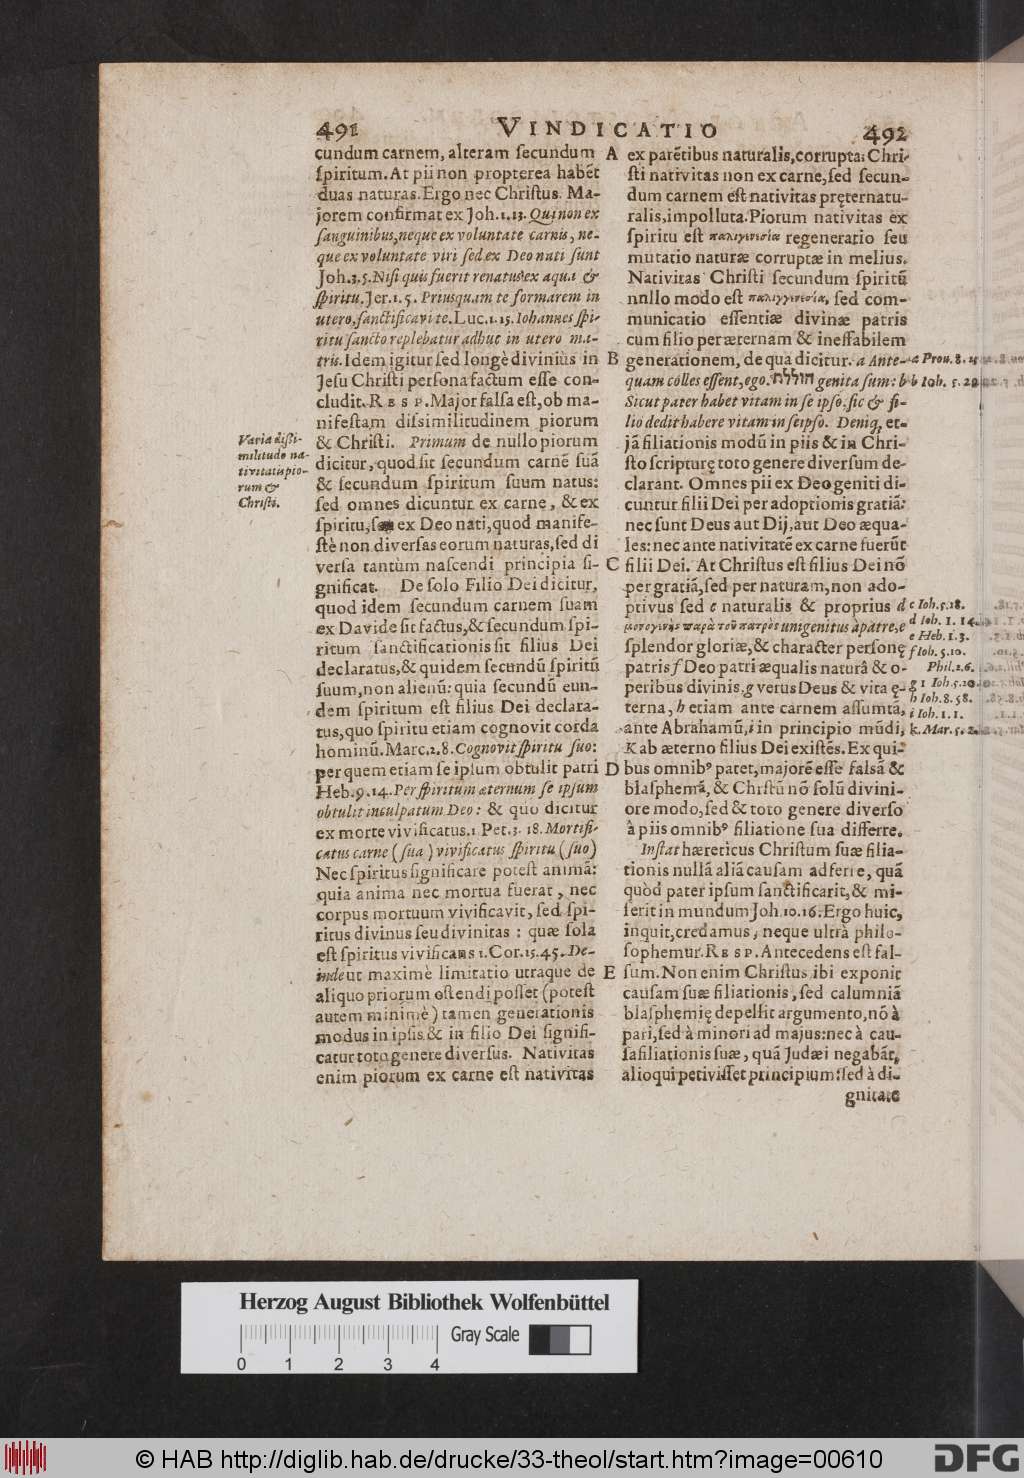 491 VINDICATIO 492
cundum carnem, alteram ſecundum
ſpiritum. At pii non propterea habēt
duas naturas. Ergo nec Chriſtus. Ma-
jorem confirmat ex Joh. 1. 13. Qui non ex
ſanguinibus, neque ex voluntate carnis, ne-
que ex voluntate viri ſed ex Deo nati ſunt
Joh. 3. 5. Niſi quis fuerit renatus ex aqua &
ſpiritu. Jer. 1. 5. Priusquam te formarem in
utero, ſanctificavi te. Luc. 1. 15. Iohannes ſpi-
ritu ſancto replebatur adhuc in utero ma-
tris. Idem igitur ſed longè divinius in
Jeſu Chriſti perſona factum eſſe con-
cludit. RESP. Major falſa eſt, ob ma-
nifeſtam diſsimilitudinem piorum
& Chriſti. Primum de nullo piorum
dicitur, quod ſit ſecundum carnē ſuā
& ſecundum ſpiritum ſuum natus:
ſed omnes dicuntur ex carne, & ex
ſpiritu, ex Deo nati, quod manife-
ſtè non diverſas eorum naturas, ſed di
verſa tantùm naſcendi principia ſi-
gnificat. De ſolo Filio Dei dicitur,
quod idem ſecundum carnem ſuam
ex Davide ſit factus, & ſecundum ſpi-
ritum ſanctificationis ſit filius Dei
declaratus, & quidem ſecundū ſpiritū
ſuum, non alienū: quia ſecundū eun-
dem ſpiritum eſt filius Dei declara-
tus, quo ſpiritu etiam cognovit corda
hominū. Marc. 2. 8. Cognovit ſpiritu ſuo:
per quem etiam ſe ipſum obtulit patri
Heb. 9. 14. Per ſpiritum æternum ſe ipſum
obtulit inculpatum Deo: & quo dicitur
ex morte vivificatus. 1 Pet. 3. 18. Mortifi-
catus carne (ſua) vivificatus ſpiritu (ſuo)
Nec ſpiritus ſignificare poteſt animā:
quia anima nec mortua fuerat, nec
corpus mortuum vivificavit, ſed ſpi-
ritus divinus ſeu divinitas: quæ ſola
eſt ſpiritus vivificans 1. Cor. 15. 45. De-
inde ut maximè limitatio utraque de
aliquo priorum oſtendi poſſet (poteſt
autem minimè) tamen generationis
modus in ipſis & in filio Dei ſignifi-
catur toto genere diverſus. Nativitas
enim piorum ex carne eſt nativitas
Varia diſſi-
militudo na-
tivitatis pio-
rum &
Chriſti.
A
B
C
D
E
ex parētibus naturalis, corrupta: Chri-
ſti nativitas non ex carne, ſed ſecun-
dum carnem eſt nativitas pręternatu-
ralis, impolluta. Piorum nativitas ex
ſpiritu eſt παλιγγενεσία regeneratio ſeu
mutatio naturæ corruptæ in melius.
Nativitas Chriſti ſecundum ſpiritū
nullo modo eſt παλιγγενεσία, ſed com-
municatio eſſentiæ divinæ patris
cum filio per æternam & ineffabilem
generationem, de qua dicitur. a Ante-
quam colles eſſent, ego חוללתי genita ſum: b
Sicut pater habet vitam in ſe ipſo, ſic & fi-
lio dedit habere vitam in ſeipſo. Deniq, et-
jā filiationis modū in piis & in Chri-
ſto ſcripturę toto genere diverſum de-
clarant. Omnes pii ex Deo geniti di-
cuntur filii Dei per adoptionis gratiā:
nec ſunt Deus aut Dij, aut Deo æqua-
les: nec ante nativitatē ex carne fuerūt
filii Dei. At Chriſtus eſt filius Dei nō
per gratiā, ſed per naturam, non ado-
ptivus ſed c naturalis & proprius d
μονογενὴς παρὰ τοῦ πατρὸς unigenitus à patre, e
ſplendor gloriæ, & character perſonę
patris f Deo patri æqualis naturâ & o-
peribus divinis, g verus Deus & vita ę-
terna, h etiam ante carnem aſſumtā,
ante Abrahamū, i in principio mūdi,
K ab æterno filius Dei exiſtēs. Ex qui-
bus omnib9 patet, majorē eſſe falsā &
blaſphemā, & Chriſtū nō ſolū divini-
ore modo, ſed & toto genere diverſo
à piis omnib9 filiatione ſua differre.
Inſtat hæreticus Chriſtum ſuæ filia-
tionis nullā aliā cauſam adferre, quā
quòd pater ipſum ſanctificarit, & mi-
ſerit in mundum Joh. 10. 16. Ergo huic,
inquit, credamus, neque ultrà philo-
ſophemur. RESP. Antecedens eſt fal-
ſum. Non enim Chriſtus ibi exponit
cauſam ſuæ filiationis, ſed calumniā
blaſphemię depellit argumento, nō à
pari, ſed à minori ad majus: nec à cau-
ſa filiationis ſuæ, quā Judæi negabāt,
alioqui petiviſſet principium: ſed à di-
gnitate
a Prov. 8.
b Ioh. 5.
c Ioh. 5. 18.
d Ioh. 1. 14.
e Heb. 1. 3.
f Ioh. 5. 10.
Phil. 2. 6.
g 1 Ioh. 5. 20.
h Ioh. 8. 58.
i Ioh. 1. 1.
k. Mar. 5. 2.
Herzog August Bibliothek Wolfenbüttel
Gray Scale
0 1 2 3 4
© HAB http://diglib.hab.de/drucke/33-theol/start.htm?image=00610
DFG